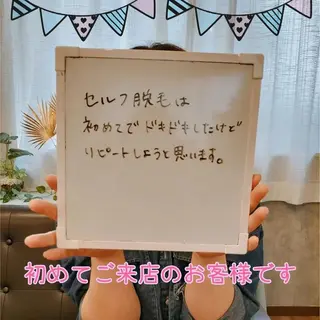 セルフ脱毛は
初めてでドキドキしたけど
リピートしようと思います。
初めてご来店のお客様です